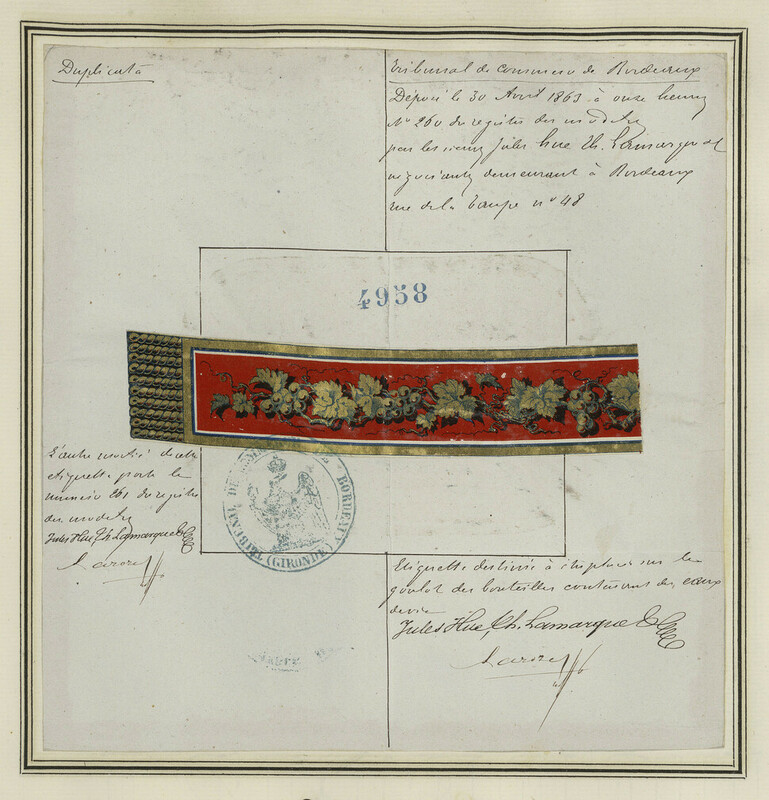 Duplicata
Tribunal de commerce de Bordeaux
Déposé le 30 Avril 1863 à onze heures
N° 260 du registre des modèles
par les sieurs Jules Hue Th. Lamarque et
négociants demeurant à Bordeaux
rue de la Taupe n° 48
4958
L'autre moitié de cette
etiquette porte le
numero 261 du registre
des modèles
Jules Hue, Th. Lamarque & Cie
TRIBUNAL DE COMMERCE BORDEAUX (GIRONDE)
Etiquette destinée à être placée sur le
goulot des bouteilles contenant des eaux
de vie
Jules Hue, Th. Lamarque & Cie